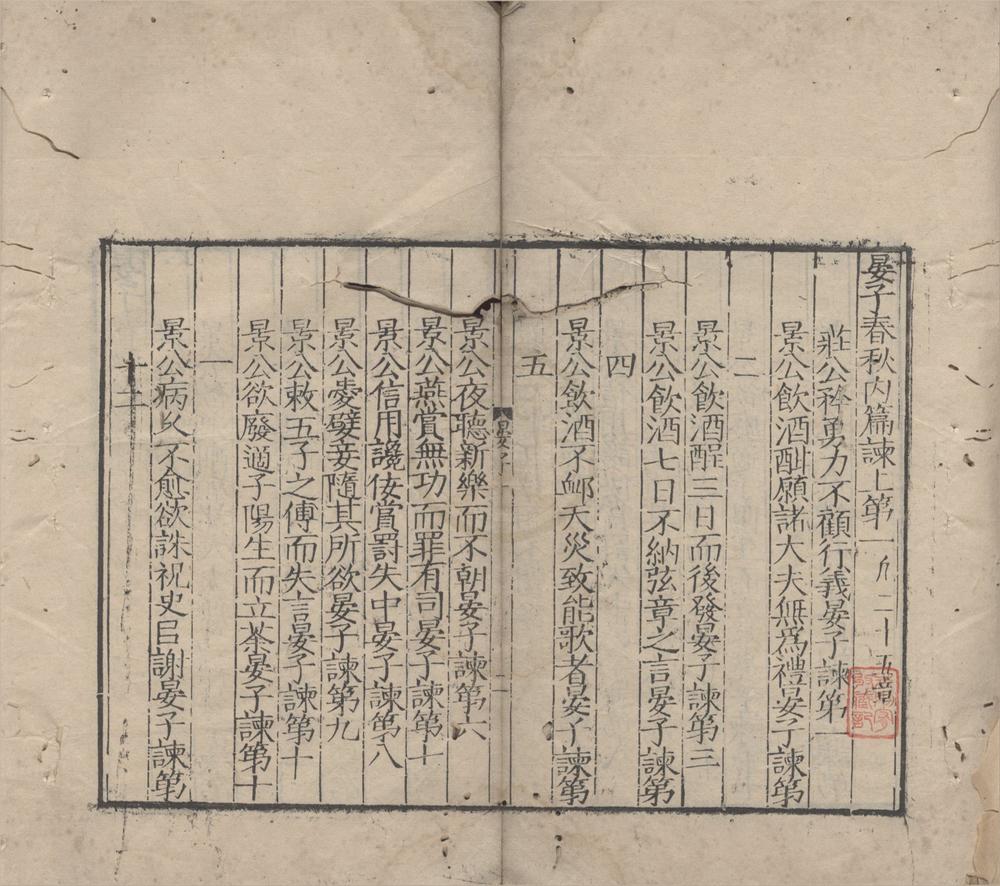 晏子春秋内篇諫上第一凡二十五章
莊公矜勇力不顧行義晏子諫第一
景公飲酒酣願諸大夫無爲禮晏子諫第
二
景公飲酒酲三日而後發晏子諫第三
景公飲酒七日不納弦章之言晏子諫第
四
景公飲酒不䘏天災致能歌者晏子諫第
五
晏子
二
景公夜聽新樂而不朝晏子諫第六
景公燕賞無功而罪有司晏子諫第七
景公信用讒佞賞罰失中晏子諫第八
景公愛嬖妾隨其所欲晏子諫第九
景公敕五子之傅而失言晏子諫第十
景公欲廢適子陽生而立荼晏子諫第十
一
景公病久不愈欲誅祝史㠯謝晏子諫第
十二